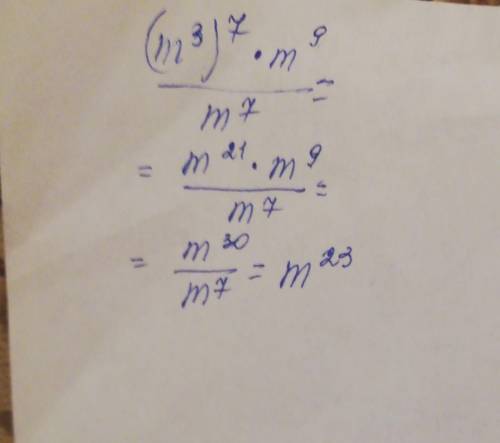 (m³)⁷ · m⁹
m⁷ =
= m²¹ · m⁹
m⁷ =
= m³⁰
m⁷ = m²³